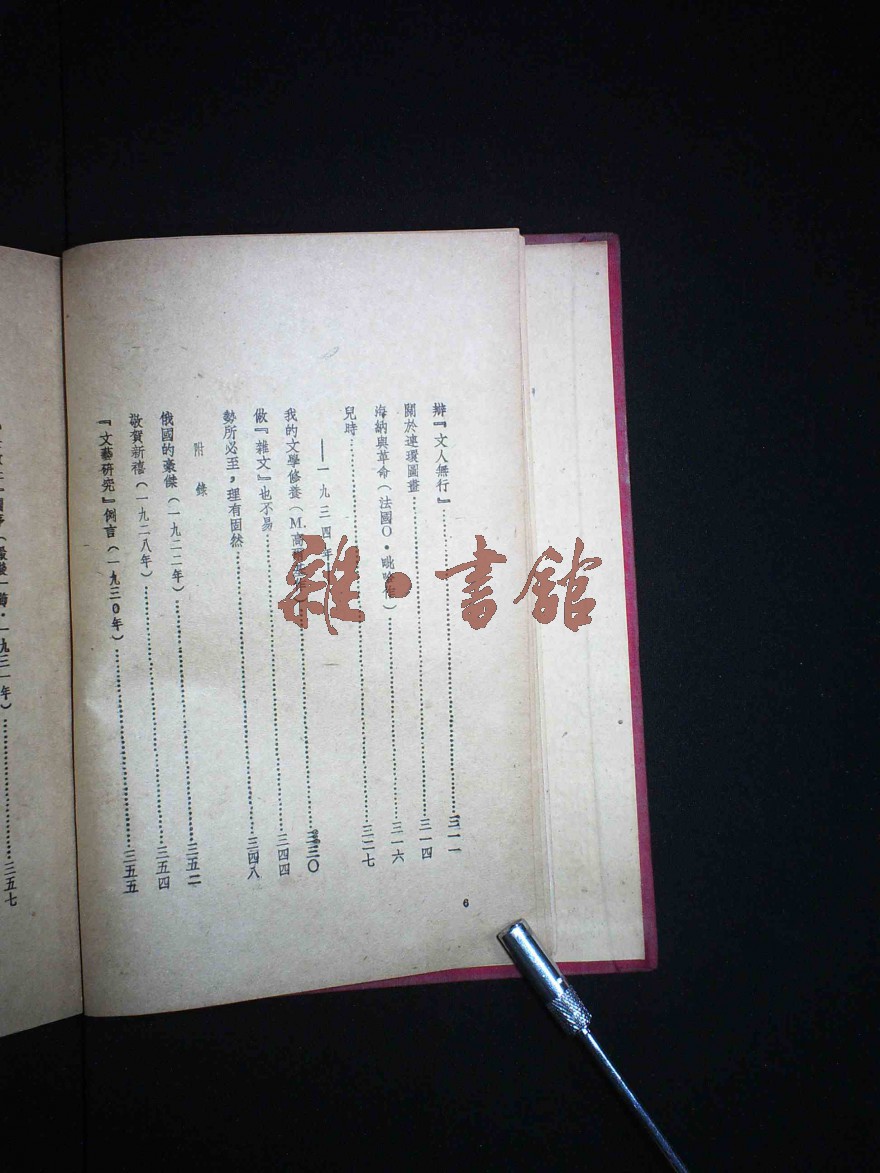 辯『文人無行』……三一一
關於連環圖畫……三一四
海納與革命（法國O・毗　　）……三一六
兒時……三二七
——一九三四年
我的文學修養（M.高　　）……三三〇
做『雜文』也不易……三四四
勢所必至，理有固然……三四八
附錄
俄國的豪傑（一九二二年）……三五二
敬賀新禧（一九二八年）……三五四
『文藝研究』例言（一九三0年）……三五五
・一九三一年）……三五七
6
雜・書館